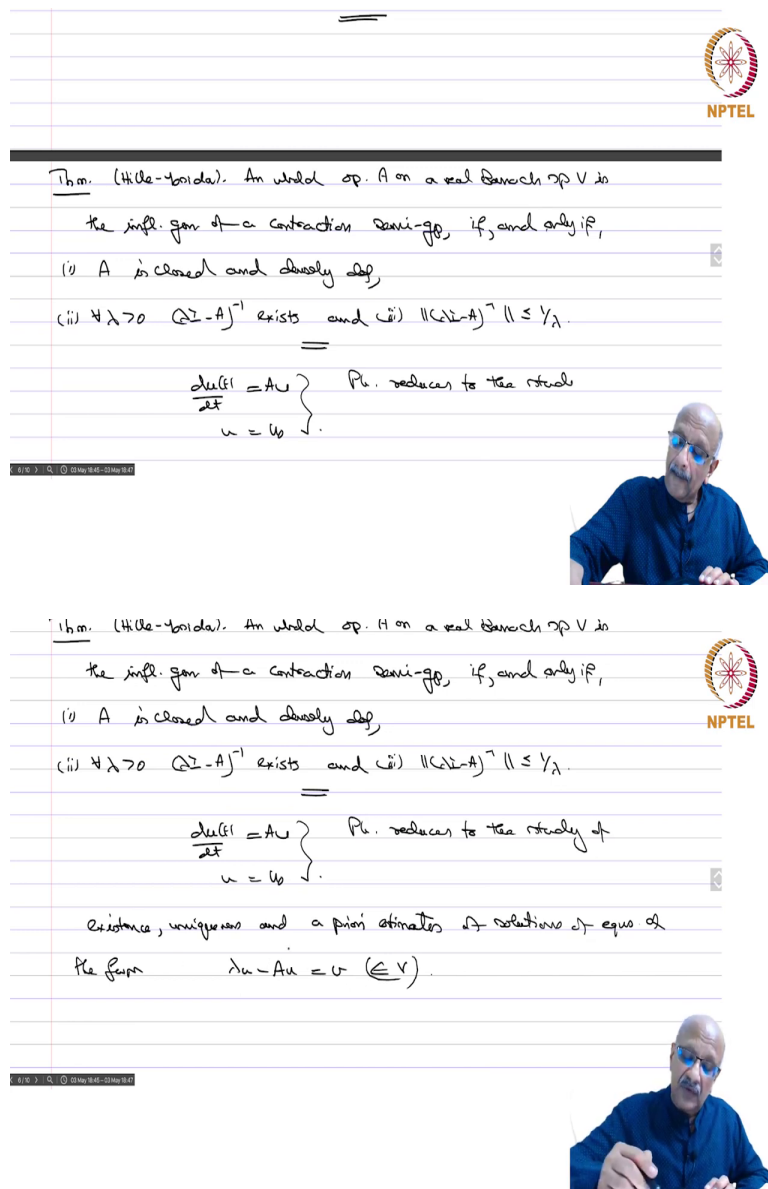 NPTEL
Thm. (Hille-Yosida). An unbdd op. A on a real Banach sp V is
the infl. gen of a contraction semi-gp, if, and only if,
(i) A is closed and densely def,
(ii) ∀ λ>0 (λI-A)⁻¹ exists and (iii) ||(λI-A)⁻¹|| ≤ 1/λ.
du(t)/dt = Au } Pb. reduces to the stud
u = u₀
6 / 10 03 May 18:45 – 03 May 18:47
Thm. (Hille-Yosida). An unbdd op. A on a real Banach sp V is
NPTEL
the infl. gen of a contraction semi-gp, if, and only if,
(i) A is closed and densely def,
(ii) ∀ λ>0 (λI-A)⁻¹ exists and (iii) ||(λI-A)⁻¹|| ≤ 1/λ.
du(t)/dt = Au } Pb. reduces to the study of
u = u₀
existence, uniqueness and a priori estimates of solutions of eqns. of
the form λu - Au = v (∈ V).
6 / 10 03 May 18:45 – 03 May 18:47